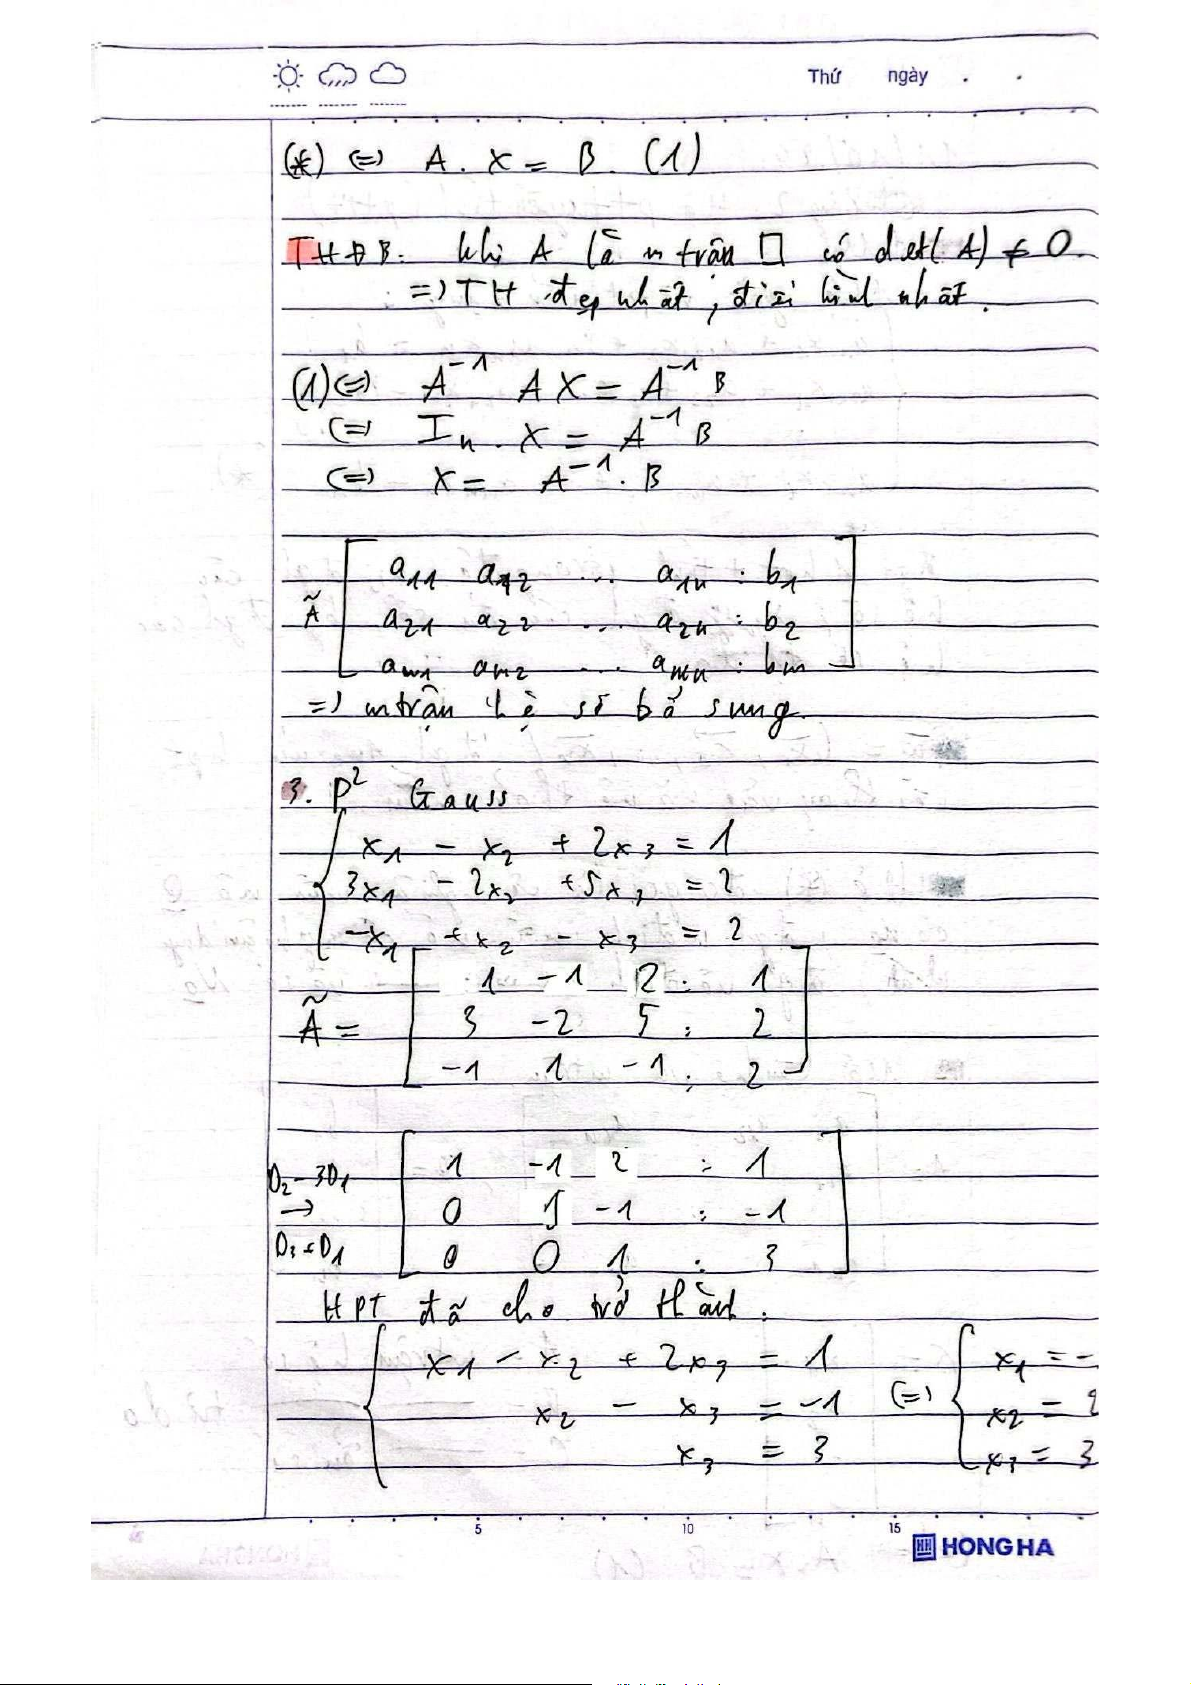 Thứ ngày . .
(*) (=) A . X = B . (1)
THĐB: khi A là m trận □ có det(A) ≠ 0.
=) TH đẹp nhất, đi xi hình nhất.
(1) (=) A⁻¹ A X = A⁻¹ B
(=) Iₙ . X = A⁻¹ B
(=) X = A⁻¹ . B
a₁₁ a₁₂ ... a₁ₙ : b₁
Ã a₂₁ a₂₂ ... a₂ₙ : b₂
aₘ₁ aₘ₂ ... aₘₙ : bₘ
=) m trận hệ số bổ sung.
3. P² Gauss
x₁ - x₂ + 2x₃ = 1
3x₁ - 2x₂ + 5x₃ = 2
-x₁ + x₂ - x₃ = 2
1 -1 2 : 1
Ã = 3 -2 5 : 2
-1 1 -1 : 2
1 -1 2 : 1
D₂ - 3D₁
→ 0 1 -1 : -1
D₃ + D₁ 0 0 1 : 3
HPT đã cho trở thành:
x₁ - x₂ + 2x₃ = 1 x₁ = -
x₂ - x₃ = -1 (=) x₂ = 2
x₃ = 3 x₃ = 3
5 10 15
HONG HA